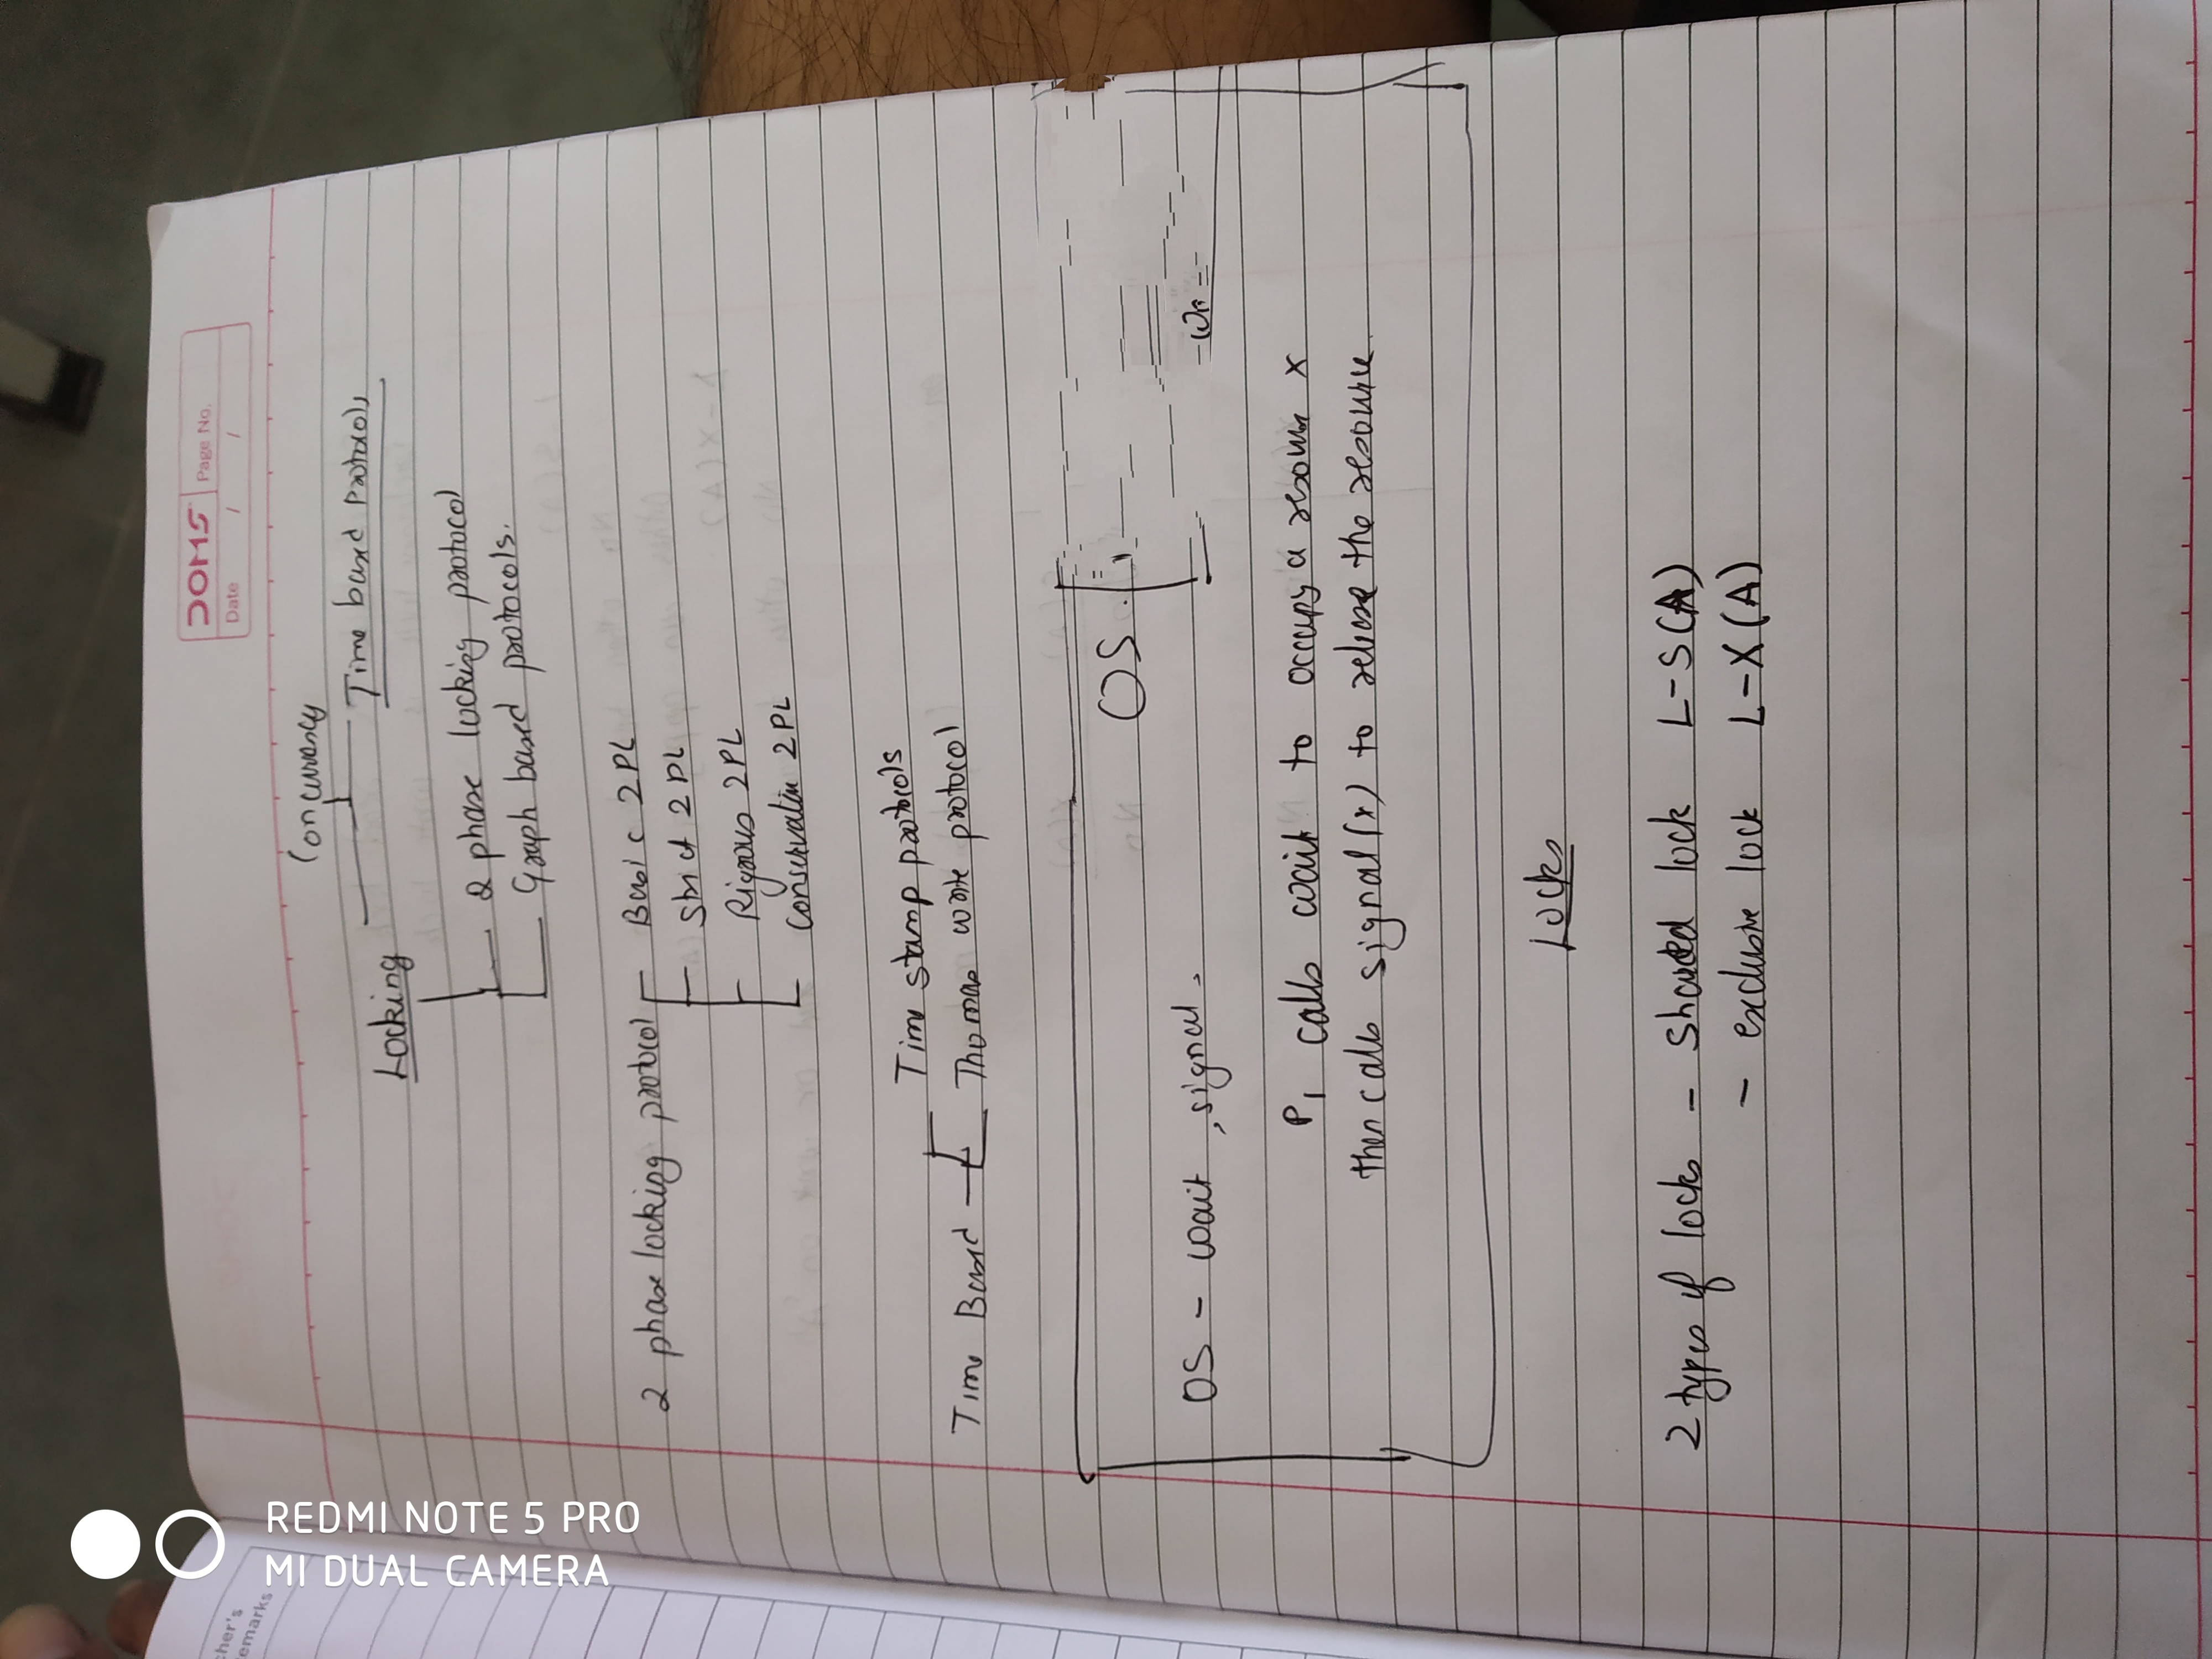 DOMS
Page No.
Date / /
Concurrency
Locking
Time based protocols
2 phase locking protocol
Graph based protocols.
2 phase locking protocol
Basic 2PL
Strict 2PL
Rigorous 2PL
Conservative 2PL
Time Based
Time stamp protocols
Thomas write protocol
OS
OS - wait, signal.
P1 calls wait to occupy a resource x
then calls signal(x) to release the resource
Locks
2 types of locks - Shared lock L-S(A)
- exclusive lock L-X(A)
REDMI NOTE 5 PRO
MI DUAL CAMERA
cher's
emarks